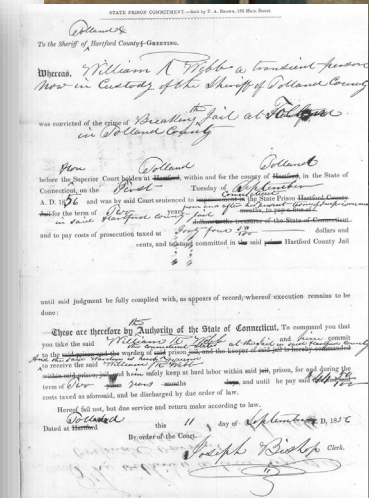 STATE PRISON COMMITMENT.—Sold by F. A. Brown, 196 Main Street.
Tolland &
To the Sheriff of Hartford County—GREETING.
Whereas, William R. Webb a transient person
now in Custody of the Sheriff of Tolland County
was convicted of the crime of Breaking the Jail at Tolland
in Tolland County
Hon Tolland Tolland
before the Superior Court holden at Hartford, within and for the county of Hartford, in the State of
Connecticut, on the First Tuesday of September
A. D. 1856 and was by said Court sentenced to imprisonment in the State Prison Hartford County
Jail for the term of Two years
in said Hartford County Jail dollars to the treasurer of the State of Connecticut
and to pay costs of prosecution taxed at Forty four 58/100 dollars and
cents, and to stand committed in the said prison Hartford County Jail
until said judgment be fully complied with, as appears of record, whereof execution remains to be
done:
These are therefore by the Authority of the State of Connecticut, To command you that
you take the said William R. Webb and him commit
to the said prison and the warden of said prison jail, and the keeper of said jail is hereby commanded
to receive the said William R. Webb
within said prison, jail, and him safely keep at hard labor within said jail, prison, for and during the
term of Two years months days, and until he pay said
costs taxed as aforesaid, and be discharged by due order of law.
Hereof fail not, but due service and return make according to law.
Tolland
Dated at Hartford this 11 day of September A. D. 1856
By order of the Court.
Joseph Bishop Clerk.